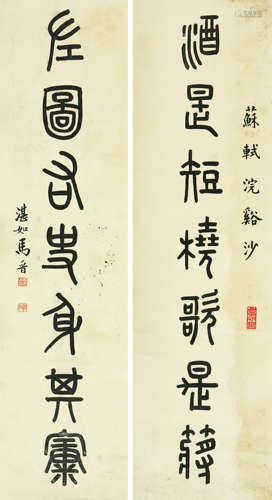 蘇軾浣谿沙
酒是短橈歌是
左圖右史身其
湛如馬晉